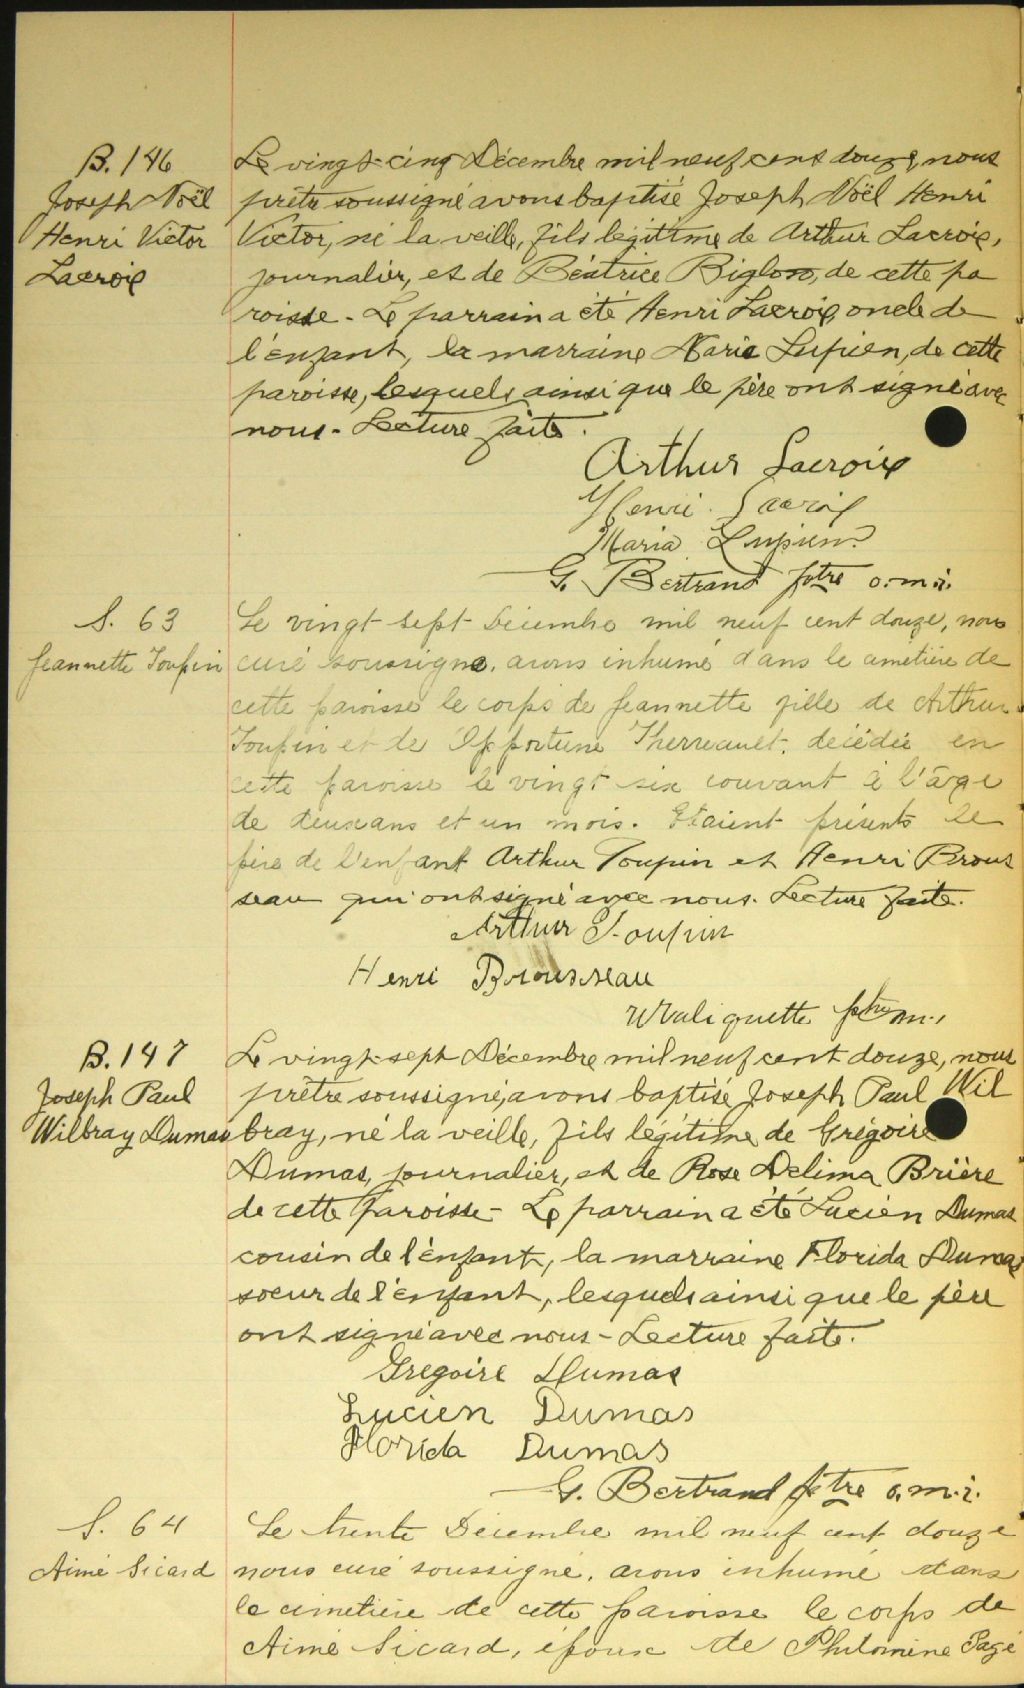 B. 146
Joseph Noël
Henri Victor
Lacroix
Le vingt-cinq Décembre mil neuf cent douze, nous
prêtre soussigné avons baptisé Joseph Noël Henri
Victor, né la veille, fils légitime de Arthur Lacroix,
journalier, et de Béatrice Biglow, de cette pa
roisse - Le parrain a été Henri Lacroix, oncle de
l'enfant, la marraine Maria Lupien, de cette
paroisse, lesquels ainsi que le père ont signé avec
nous - Lecture faite.
Arthur Lacroix
Henri Lacroix
Maria Lupien
G. Bertrand ptre o.m.i.
S. 63
Jeannette Toupin
Le vingt sept Décembre mil neuf cent douze, nous
curé soussigné, avons inhumé dans le cimetière de
cette paroisse le corps de Jeannette fille de Arthur
Toupin et de Opportune Therreault, décédée en
cette paroisse le vingt six courant à l'âge
de deux ans et un mois. Etaient présents le
père de l'enfant Arthur Toupin et Henri Brous
seau qui ont signé avec nous. Lecture faite.
Arthur Toupin
Henri Brousseau
Valiquette ptre
B. 147
Joseph Paul
Wilbray Dumas
Le vingt-sept Décembre mil neuf cent douze, nous
prêtre soussigné, avons baptisé Joseph Paul Wil
bray, né la veille, fils légitime de Grégoire
Dumas, journalier, et de Rose Delima Brière
de cette paroisse - Le parrain a été Lucien Dumas
cousin de l'enfant, la marraine Florida Dumas
soeur de l'enfant, lesquels ainsi que le père
ont signé avec nous - Lecture faite.
Gregoire Dumas
Lucien Dumas
Florida Dumas
G. Bertrand ptre o.m.i.
S. 64
Aimé Sicard
Le trente Décembre mil neuf cent douze
nous curé soussigné, avons inhumé dans
le cimetière de cette paroisse le corps de
Aimé Sicard, époux de Philomène Pagé